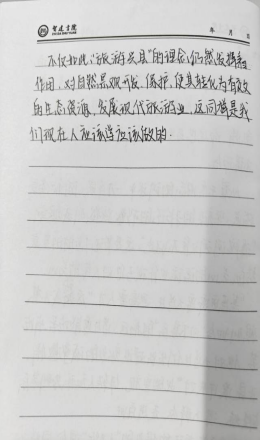 智建书院
年 月 日
不仅如此,"旅游兴县"的理念仍然发挥着
作用,对自然景观开发、保护,使其转化为有效
的生态资源,发展现代旅游业,这同样是我
们现在人应该当应该做的.